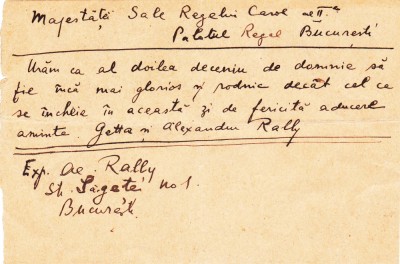 Majestății Sale Regelui Carol al II-a
Palatul Regal București
Urăm ca al doilea deceniu de domnie să
fie încă mai glorios și rodnic decât cel ce
se încheia în această zi de fericită aducere
aminte. Getta și Alexandru Rally
Exp. Al. Rally
Str. Săgetei No 1.
București.